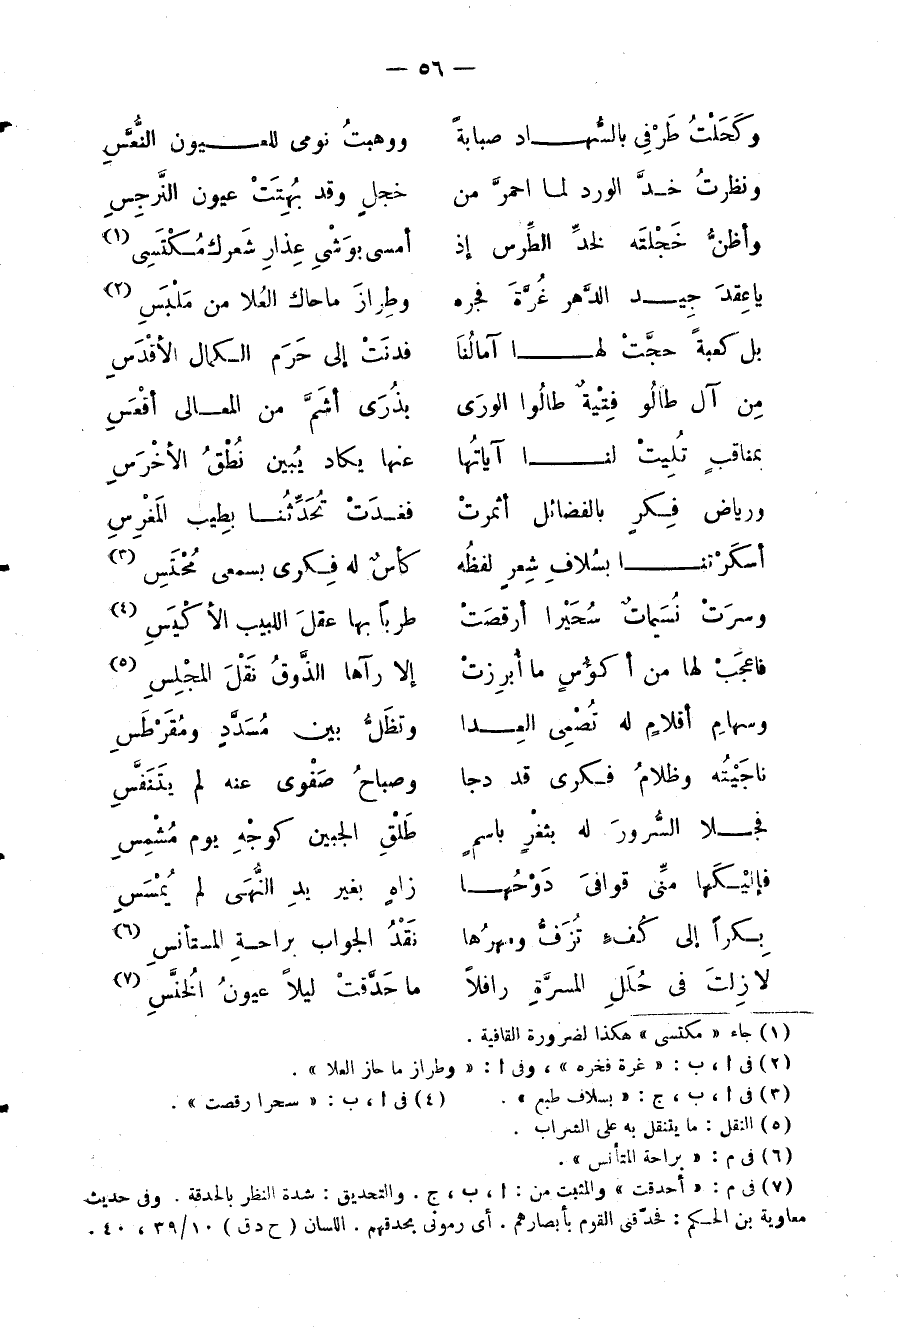 — ٥٦ —
وكَحَلْتُ طَرْفِى بالسُّهاد صبابةً ووهبتُ نومى للعيون النُّعَّسِ
ونظرتُ خدَّ الورد لما احمرَّ من خجلٍ وقد بُهِتَتْ عيون النَّرجِسِ
وأظنُّ خَجْلتَه لخدِّ الطِّرس إذ أمسى بوَشْىِ عِذارِ شَعرك مُكْتَسِى (١)
ياعِقدَ جِيد الدَّهر غُرَّةَ فجره وطِرازَ ماحاك العُلا من مَلْبَسِ (٢)
بل كعبةً حجَّتْ لها آمالُنَا فدنَتْ إلى حَرَم الكمال الأقْدَسِ
مِن آل طالُو فِتْيةٌ طالُوا الورَى بذُرَى أشَمَّ من المعالى أقْعَسِ
بمناقبٍ تُلِيتْ لنا آياتُها عنها يكاد يُبين نُطْقُ الأخْرَسِ
ورياض فِكرٍ بالفضائل أثمرتْ فغدَتْ تُحَدِّثُنا بطِيب المَغْرِسِ
أسكَرْتنا بسُلافِ شِعرٍ لفظُه كأسٌ له فِكرى بسمعى مُحْتَسِ (٣)
وسرَتْ نُسَيماتٌ سُحَيْرا أرقصَتْ طرباً بها عقلَ اللبيب الأكْيَسِ (٤)
فاعجَبْ لها من أكؤسٍ ما أُبرِزتْ إلا رآها الذَّوقُ نَقْلَ المجْلِسِ (٥)
وسهامِ أقلامٍ له تُصْمِى العِدا وتظَلُّ بين مُسَدَّدٍ ومُقَرْطَسِ
ناجَيْتُه وظلامُ فكرى قد دجا وصباحُ صَفْوى عنه لم يتَنَفَّسِ
فجلا السُّرورَ له بثغْرٍ باسمٍ طَلْقِ الجبين كوجْهِ يوم مُشْمِسِ
فإليْكَها منِّى قوافىَ دَوْحُها زاهٍ بغير يدِ النُّهَى لم يُمْسَسِ
بِكراً إلى كُفءٍ تُزَفُّ ومهرُها نَقْدُ الجواب براحةِ المستأنسِ (٦)
لا زِلتَ فى حُلَلِ المسرَّةِ رافلاً ما حَدَّقتْ ليلاً عيونُ الخُنَّسِ (٧)
(١) جاء « مكتسى » هكذا لضرورة القافية .
(٢) فى ا ، ب : « غرة فخره » ، وفى ا : « وطراز ما حاز العلا » .
(٣) فى ا ، ب ، ج : « بسلاف طبع » . (٤) فى ا ، ب : « سحرا رقصت » .
(٥) النقل : ما يتنقل به على الشراب .
(٦) فى م : « براحة المتأنس » .
(٧) فى م : « أحدقت » والمثبت من : ا ، ب ، ج . والتحديق : شدة النظر بالحدقة . وفى حديث
معاوية بن الحكم : فحدّقنى القوم بأبصارهم . أى رمونى بحدقهم . اللسان ( ح د ق ) ٣٩/١٠ ، ٤٠ .